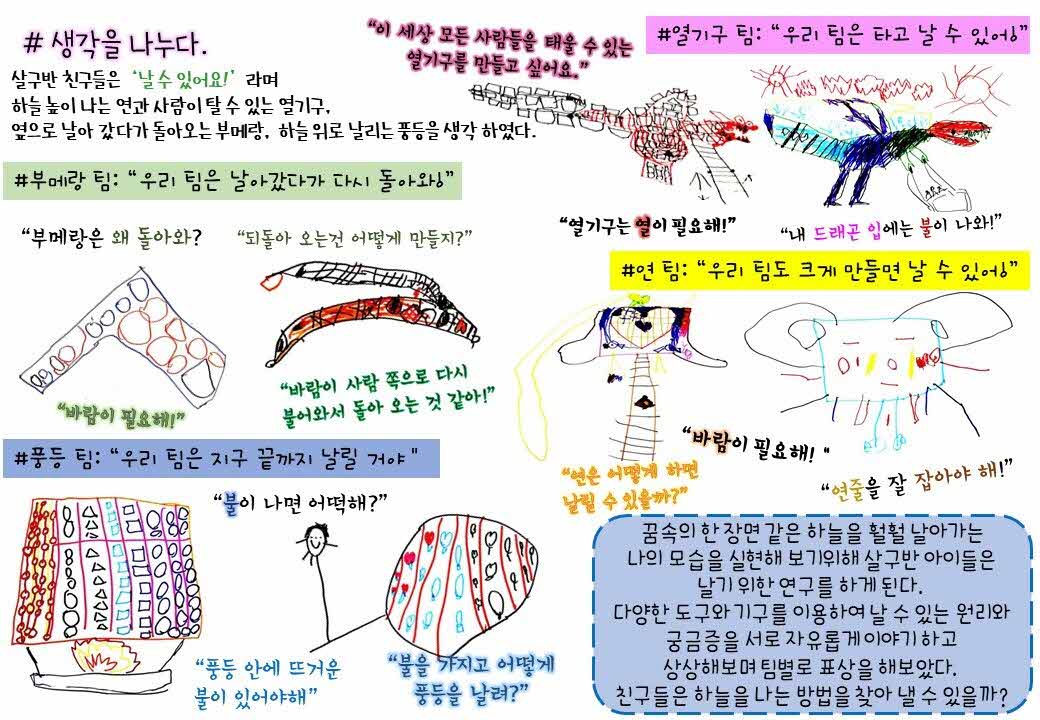 # 생각을 나누다.
살구반 친구들은 '날 수 있어요!' 라며
하늘 높이 나는 연과 사람이 탈 수 있는 열기구,
옆으로 날아 갔다가 돌아오는 부메랑, 하늘 위로 날리는 풍등을 생각 하였다.
"이 세상 모든 사람들을 태울 수 있는
열기구를 만들고 싶어요."
#열기구 팀: "우리 팀은 타고 날 수 있어!"
"열기구는 열이 필요해!"
"내 드래곤 입에는 불이 나와!"
#부메랑 팀: "우리 팀은 날아갔다가 다시 돌아와!"
"부메랑은 왜 돌아와?
"되돌아 오는건 어떻게 만들지?"
"바람이 필요해!"
"바람이 사람 쪽으로 다시
불어와서 돌아 오는 것 같아!"
#연 팀: "우리 팀도 크게 만들면 날 수 있어!"
"연은 어떻게 하면
날릴 수 있을까?"
"바람이 필요해! "
"연줄을 잘 잡아야 해!"
#풍등 팀: "우리 팀은 지구 끝까지 날릴 거야"
"불이 나면 어떡해?"
"풍등 안에 뜨거운
불이 있어야해"
"불을 가지고 어떻게
풍등을 날려?"
꿈속의 한 장면 같은 하늘을 훨훨 날아가는
나의 모습을 실현해 보기위해 살구반 아이들은
날기 위한 연구를 하게 된다.
다양한 도구와 기구를 이용하여 날 수 있는 원리와
궁금증을 서로 자유롭게 이야기 하고
상상해보며 팀별로 표상을 해보았다.
친구들은 하늘을 나는 방법을 찾아 낼 수 있을까?